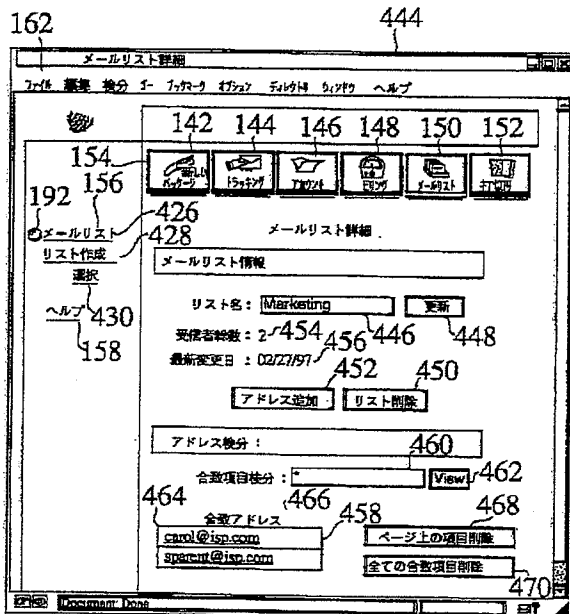 162
444
メールリスト詳細
ファイル 編集 検分 ゴー ブックマーク オプション ディレクトリ ウィンドウ ヘルプ
142 144 146 148 150 152
154
パッケージ トラッキング アカウント ビリング メールリスト
156
192
メールリスト 426
428
リスト作成
選択
430
ヘルプ
158
メールリスト詳細
メールリスト情報
リスト名: Marketing 更新
446 448
受信者総数: 2 454
最新変更日: 02/27/97 456
452 450
アドレス追加 リスト削除
アドレス検分:
460
合致項目検分: * View 462
464 466 458 468
合致アドレス
carol@isp.com
sparent@isp.com
ページ上の項目削除
全ての合致項目削除
470
Document: Done